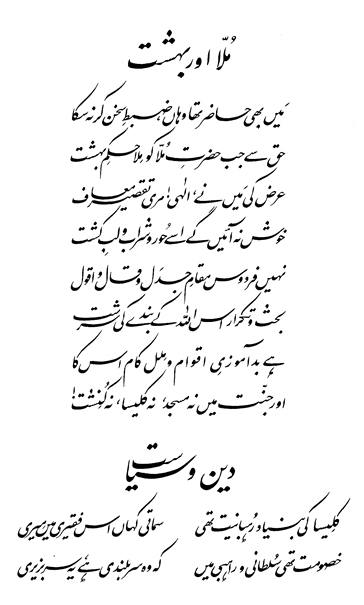 مُلّا اور بہشت
مَیں بھی حاضر تھا وہاں ضبطِ سخن کر نہ سکا
حق سے جب حضرتِ مُلّا کو مِلا حکمِ بہشت
عرض کی مَیں نے، الٰہی! مری تقصیر معاف
خوش نہ آئیں گے اسے حُور و شراب و لبِ کشت
نہیں فردوس مقامِ جدَل و قال و اقول
بحث و تکرار اس اللہ کے بندے کی سرشت
ہے بد آموزیِ اقوام و مِلل کام اس کا
اور جنّت میں نہ مسجد، نہ کلیسا، نہ کُنِشت!
دین و سیاست
کلیسا کی بنیاد رُہبانیت تھی سماتی کہاں اس فقیری میں مِیری
خصومت تھی سُلطانی و راہبی میں کہ وہ سربلندی ہے یہ سربزیری